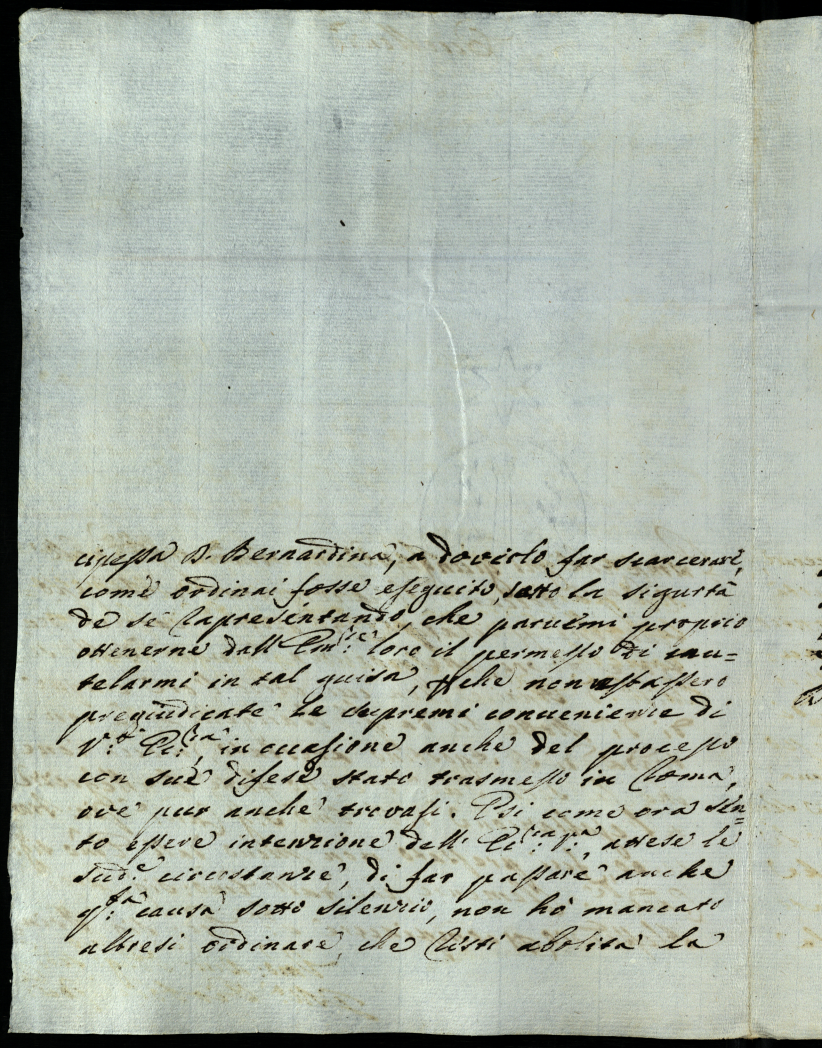 cipessa D. Bernardina, a doverlo far scarcerare,
come ordinai fosse eseguito, sotto la sigurtà
de se rapresentando, che parvemi proprio
ottenerne dall' Em.ze loro il permesso di cau=
telarmi in tal guisa, che non restassero
pregiudicate le supremi convenienze di
V.a Ecc.za, in occasione anche del processo
con sue difese stato trasmesso in Roma,
ove pur anche trovasi. E si come ora sen=
to essere intenzione dell' Ecc.za V.a, attese le
sud.e circostanze, di far passare anche
q.sta causa sotto silenzio, non hò mancato
altresi ordinare, che resti abolita la